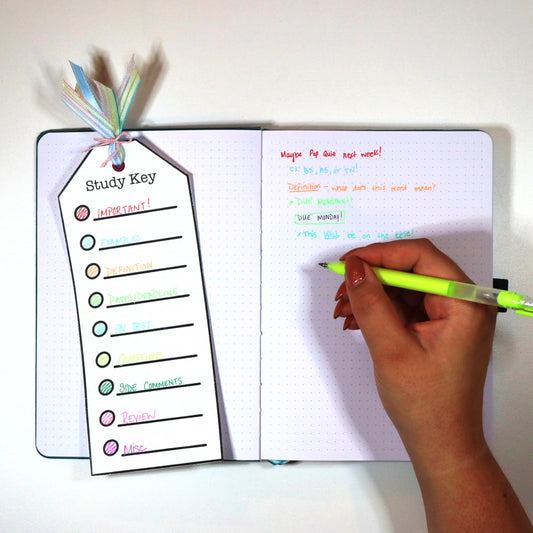 Study Key
IMPORTANT!
EXAMPLES
DEFINITION
DATES/DEADLINE
ON TEST
QUESTIONS
SIDE COMMENTS
REVIEW
Misc
Maybe Pop Quiz next week!
Definition - what does this word mean?
DUE MONDAY!!
DUE MONDAY!
This WILL be on the test!